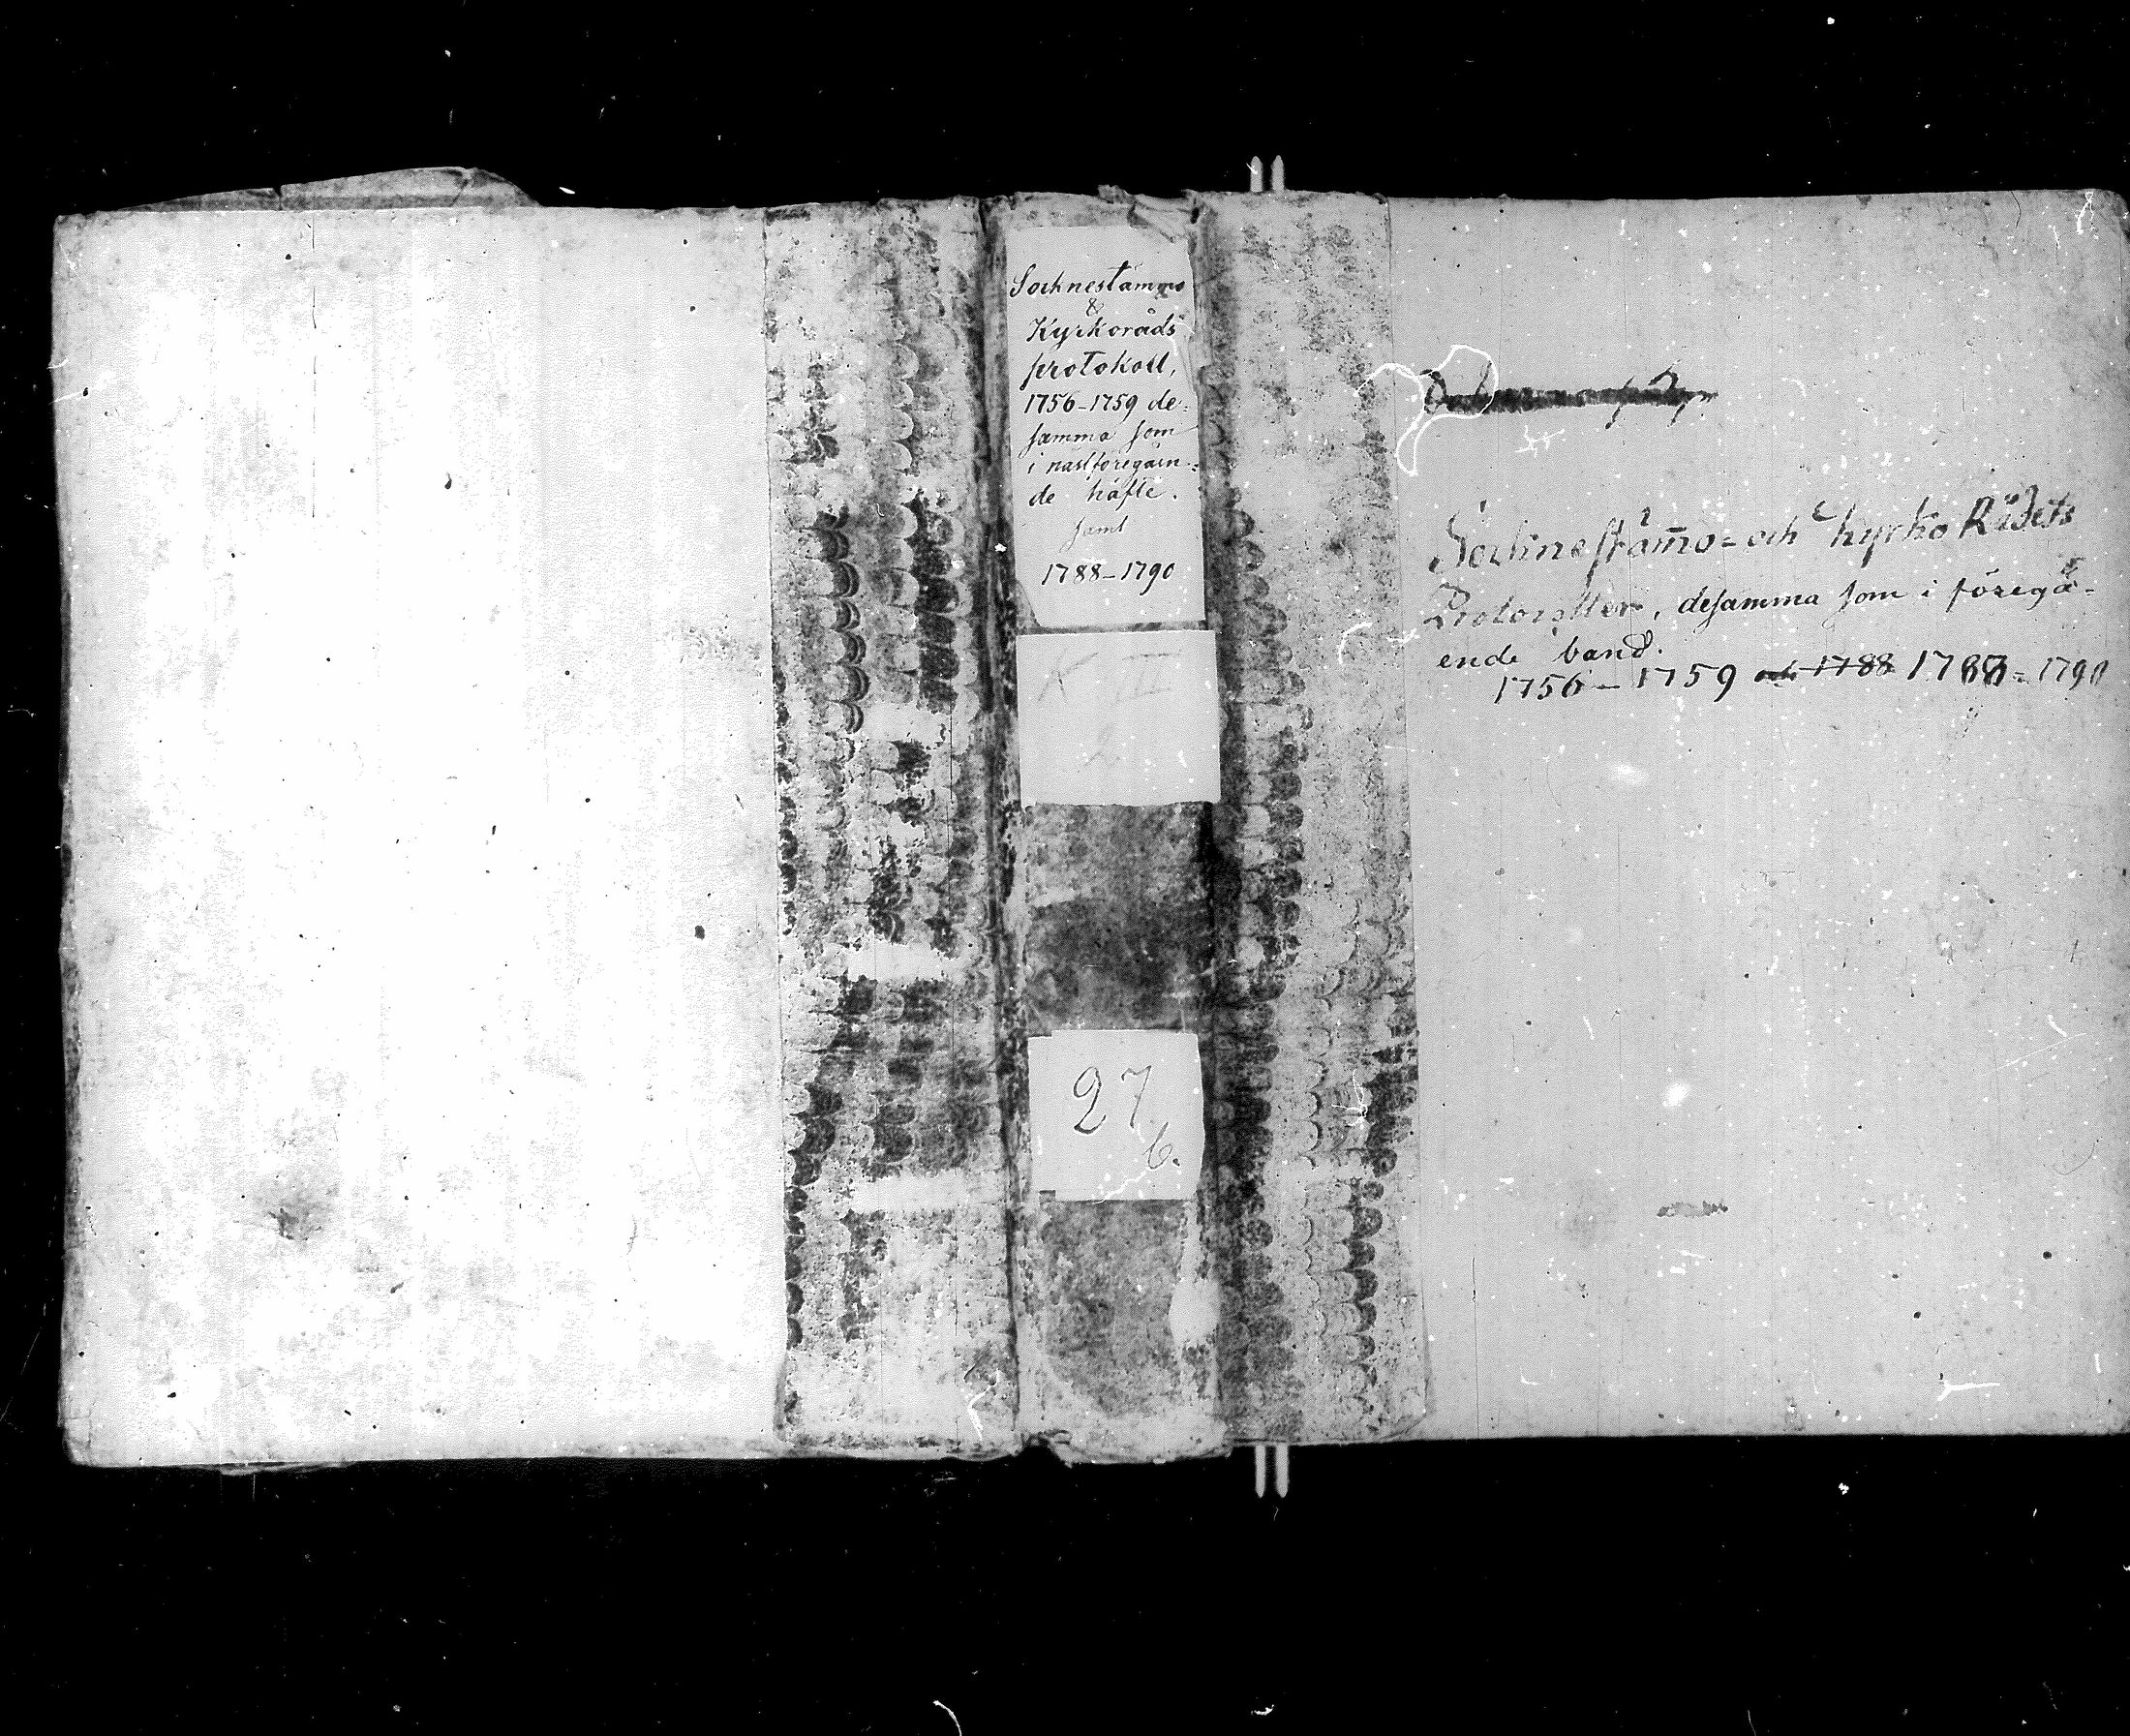 Socknestämmo
&
Kyrkoråds
protokoll,
1756-1759 de-
samma som
i nästföregåen-
de häfte.
samt
1788-1790
K II
2
27
b.
Sochnestämo- och Kyrko Rådets
Protocoller, desamma som i föregå-
ende band.
1756 - 1759 och 1788 1788 - 1790